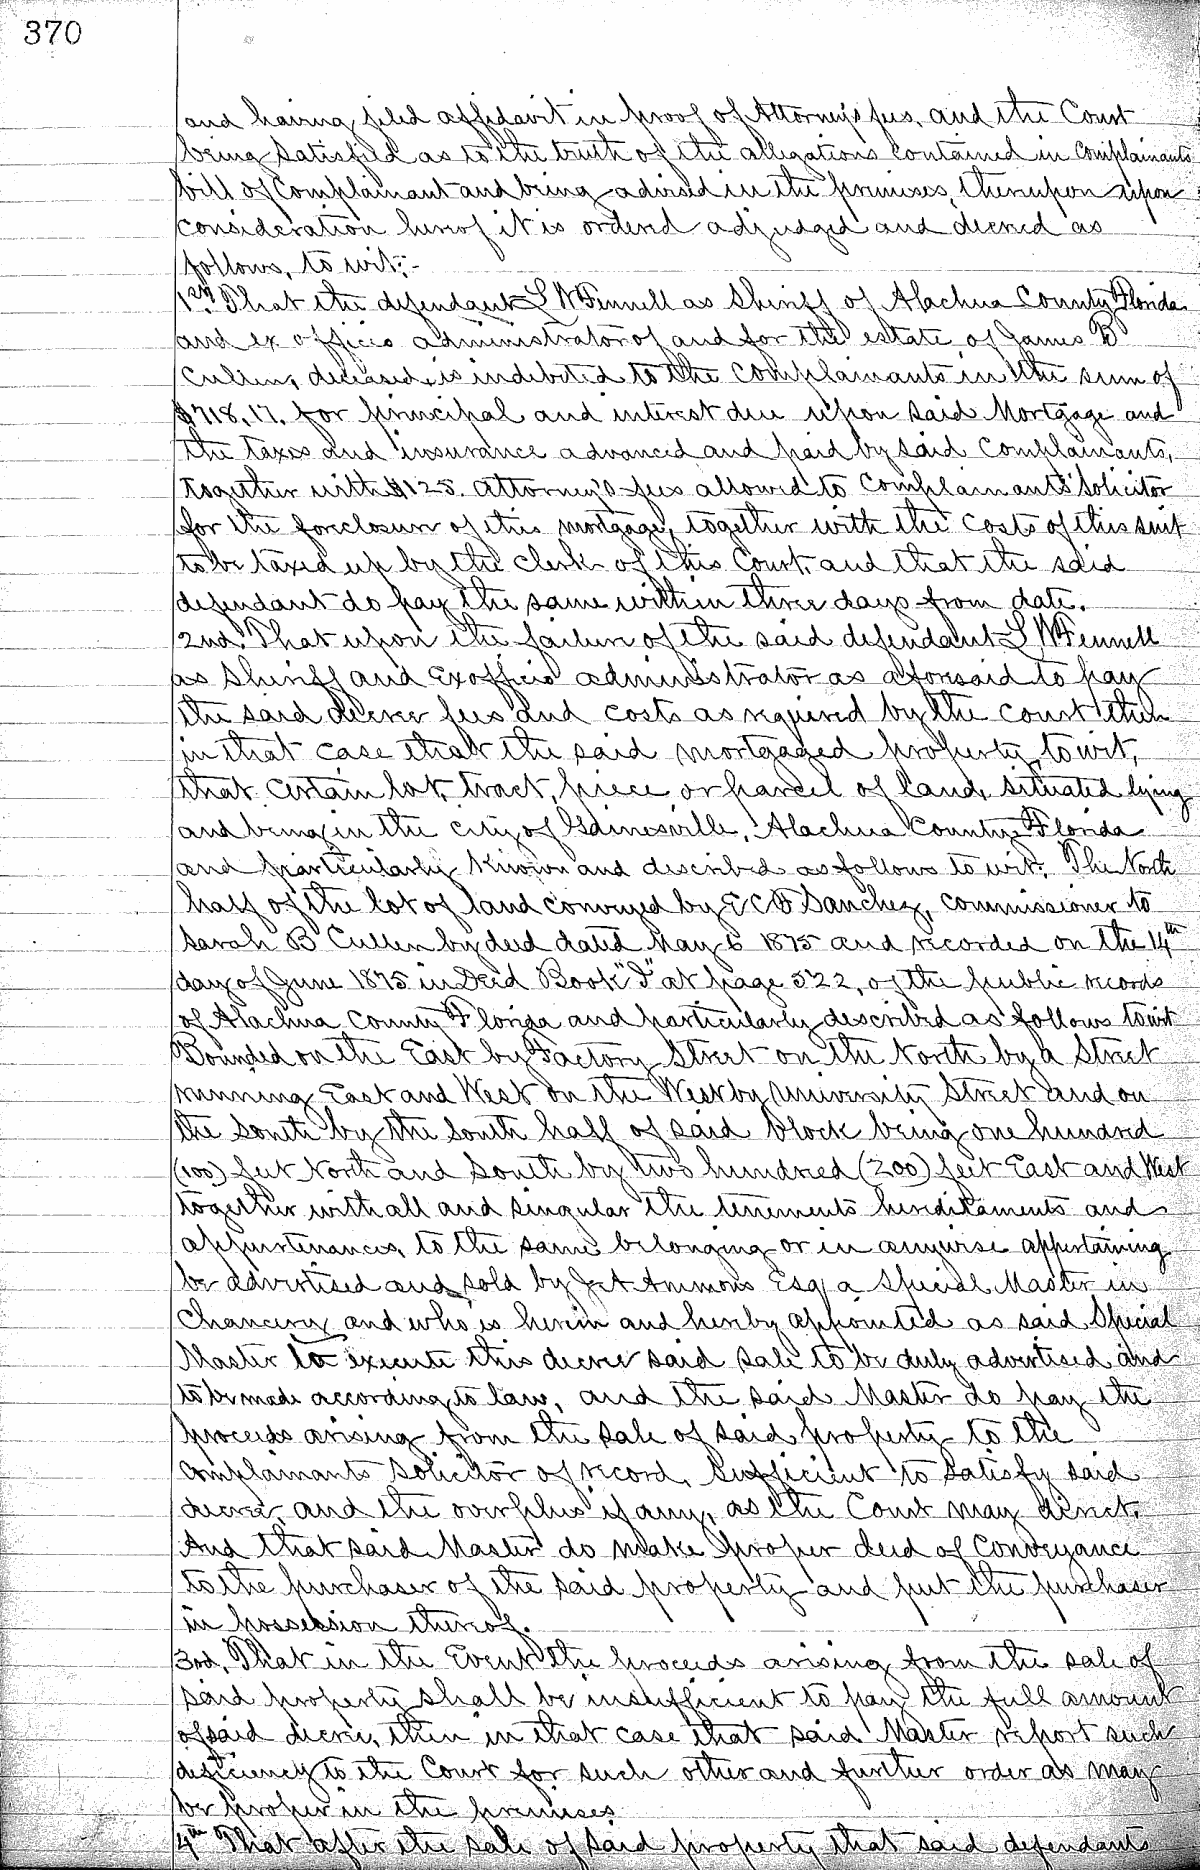 370
and having filed affidavit in proof of Attorney's fees, and the Court
being satisfied as to the truth of the allegations contained in Complainants
bill of Complainant and being advised in the premises, thereupon upon
consideration hereof it is ordered adjudged and decreed as
follows, to wit:-
1st. That the defendant L W Fennell as Sheriff of Alachua County Florida
and ex officio administrator of and for the estate of James B
Cullen, deceased, is indebted to the Complainants in the sum of
$718.17. for principal and interest due upon said Mortgage and
the taxes and insurance advanced and paid by said Complainants,
together with $125. Attorney's fees allowed to Complainants' Solicitor
for the foreclosure of this mortgage, together with the costs of this suit
to be taxed up by the clerk of this Court, and that the said
defendant do pay the same within three days from date.
2nd. That upon the failure of the said defendant L W Fennell
as Sheriff and Ex officio administrator as aforesaid to pay
the said decree fees and costs as required by the court then
in that case that the said mortgaged property, to wit,
that certain lot, tract, piece or parcel of land, situated lying
and being in the city of Gainesville, Alachua County Florida
and particularly known and described as follows to wit: The North
half of the lot of land conveyed by E C F Sanchez, commissioner to
Sarah B Cullen by deed dated May 6 1875 and recorded on the 14th
day of June 1875 in Deed Book "I" at page 522, of the public records
of Alachua County Florida and particularly described as follows towit
Bounded on the East by Factory Street on the North by a Street
running East and West on the West by University Street and on
the South by the South half of said block being one hundred
(100) feet North and South by two hundred (200) feet East and West
together with all and singular the tenements hereditaments and
appurtenances, to the same belonging or in anywise appertaining
be advertised and sold by J A Ammons Esq a Special Master in
Chancery and who is herein and hereby appointed as said Special
Master to execute this decree said sale to be duly advertised and
to be made according to law, and the said Master do pay the
proceeds arising from the sale of said property to the
Complainants Solicitor of record, sufficient to satisfy said
decree, and the overplus if any, as the Court may direct.
And that said Master do make proper deed of Conveyance
to the purchaser of the said property and put the purchaser
in possession thereof.
3rd. That in the Event the proceeds arising from the sale of
said property shall be insufficient to pay the full amount
of said decree, then in that case that said Master report such
deficiency to the Court for such other and further order as may
be proper in the premises
4th That after the sale of said property that said defendants